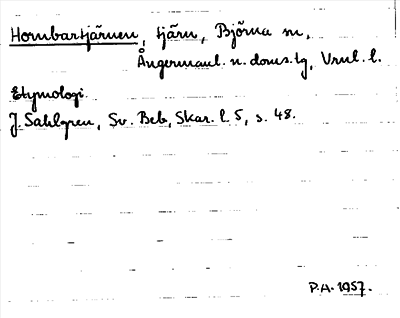 Hornbartjärnen, tjärn, Björna sn,
Ångermanl. n. doms.lg, Vrnl. l.
Etymologi.
J. Sahlgren, Sv. Beb. Skar. l. 5, s. 48.
P.A. 1957.